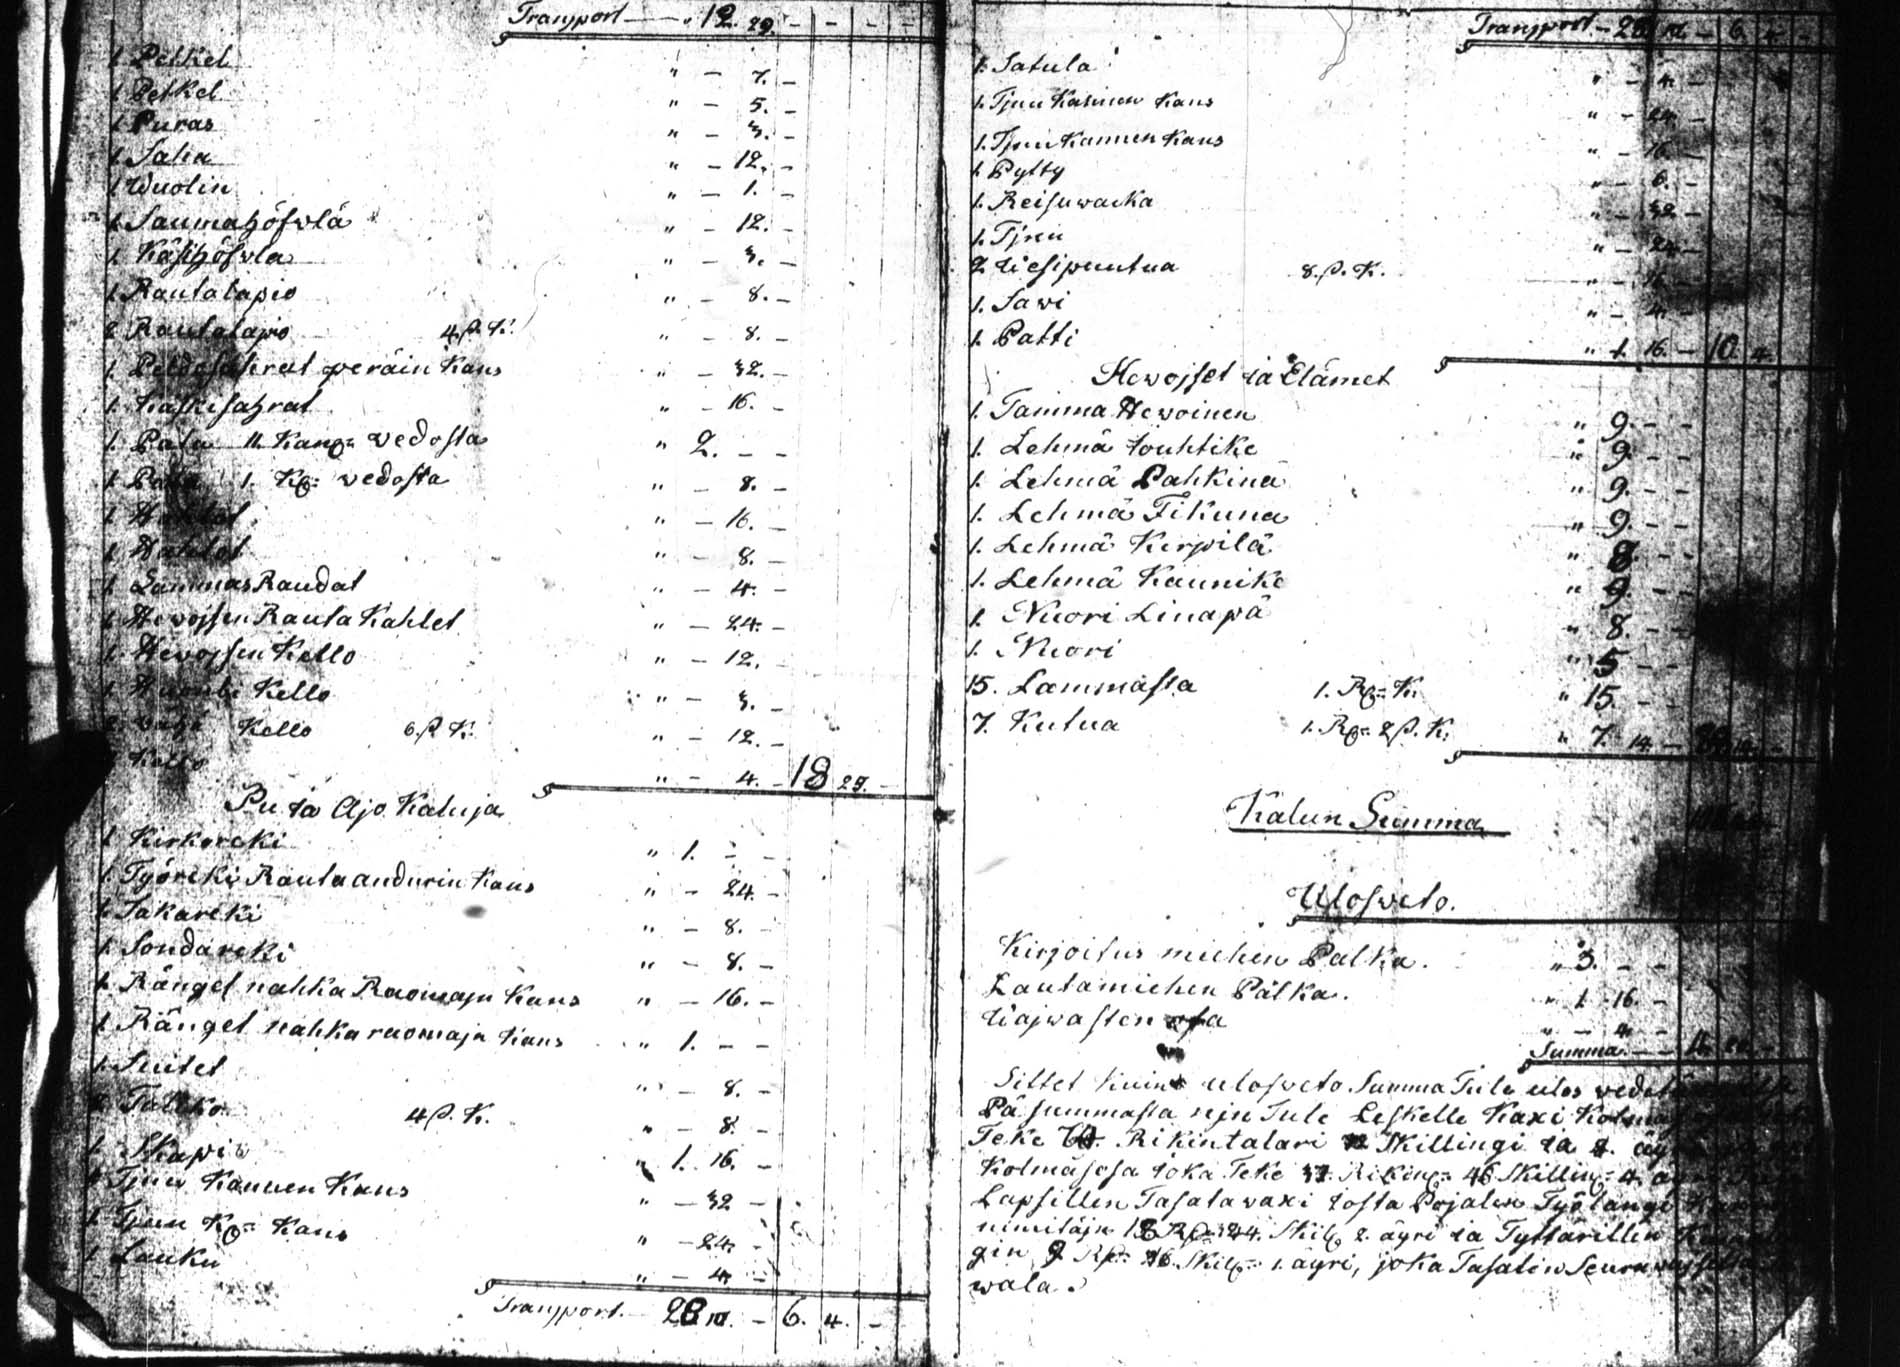 Transport — " 12. 29. - - - -
1. Petkel " - 7. -
1. Petkel " - 5. -
1. Puras " - 3. -
1. Saha " - 12. -
1. Wuolin " - 1. -
1. Saumahöfwlä " - 12. -
1. Käsihöfwla " - 3. -
1. Rautalapio " - 8. -
2 Rautalapio 4. P. K. " - 8. -
1. Peldosahrat peräin Kans " - 32. -
1. Kaskisahrat " - 16. -
1. Pata 11. Kanp= vedosta " 2. - -
1. Pata 1. Kp= vedosta " - 8. -
1. " - 16. -
1. Hahlot " - 8. -
1. Lammas Raudat " - 4. -
1. Hewoisen Rauta Kahlet " - 24. -
1. Hewoisen Kello " - 12. -
1. Kello " - 3. -
2. Kello 6. P. K. " - 12. -
Kello " - 4. - 18 29. -
Pu ja Ajo Kaluja
1. Kirkoreki " 1. - -
1. Työreki Rauta andurin Kans " - 24. -
1. Takareki " - 8. -
1. Sondareki " - 8. -
1. Ränget nahka Raomajn Kans " - 16. -
1. Ränget nahka raomajn Kans " 1. - -
1. Suitet " - 8. -
2 4 P. K. " - 8. -
1. Skapi " 1. 16. -
1. Tjnu Kannen Kans " - 32 -
1. Tjnu Kp= Kans " - 24. -
1. Lauku " - 4. -
Transport — 28 10. - 6. 4. -
Transport - 28 10 - 6. 4. -
1. Satula " - 4. -
1. Tjnu Kannen Kans " - 24. -
1. Tjnu Kannen Kans " - 16. -
1. Pytty " - 6. -
1. Reisuwacka " - 32 -
1. Tjnu " - 24 -
2. Wesipuutua 8. P. K. " - 16. -
1. Sawi " - 4. -
1. Patti " 1. 16. - 10. 4.
Hewoiset ja Elämet
1. Tamma Hewoinen " 9. - -
1. Lehmä Jouhtike " 9. - -
1. Lehmä Pahkinä " 9. - -
1. Lehmä Tikuna " 9. - -
1. Lehmä Kirpilä " 8. - -
1. Lehmä Kaunike " 9. - -
1. Nuori Linapä " 8. - -
1. Nuori " 5 - -
15. Lammasta 1. Rp= K. " 15. - -
7. Kutua 1. Rp= 2 P. K. " 7. 14. -
Kalun Summa
Ulosweto.
Kirjoitus miehen Palka. " 3. - -
Lautamiehen Palka. " 1. 16. -
Waiwasten osa " - 4. -
Summa — 4. 20. -
Sittet Kuin ulosweto Summa Tule ulos
Pä summasta nijn Tule Leskelle Kaxi
Teke Rikintalari Skillingi ja
Kolmasosa joka Teke Rikinp= Skilling= 4.
Lapsillen Tasatawaxi josta Pojalen Työlangi
nimitäjn Rp= 24. Skilp 2. äyri ja Tyttärillen
gin Rp= 16. Skilp= 1. äyri, joka Tasatin
wala.